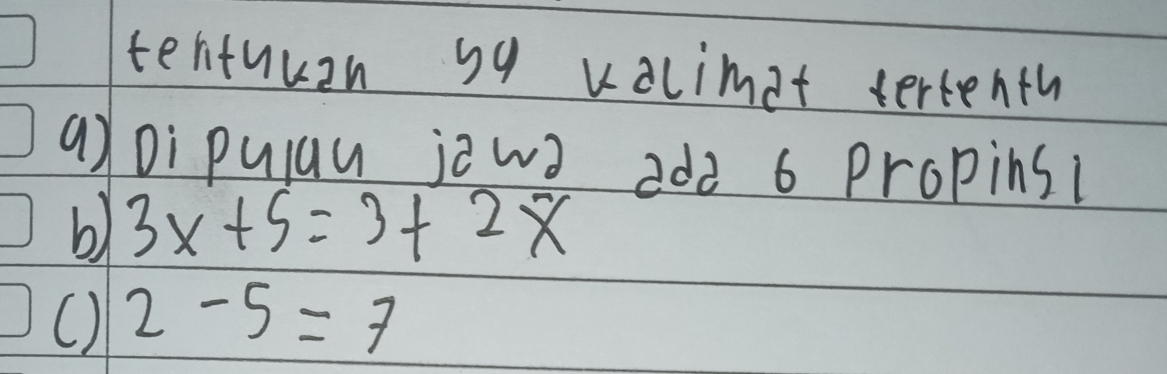 tentukan yg kalimat tertentu
a) Di pulau jawa ada 6 Propinsi
b) 3x + 5 = 3 + 2x
c) 2 - 5 = 7